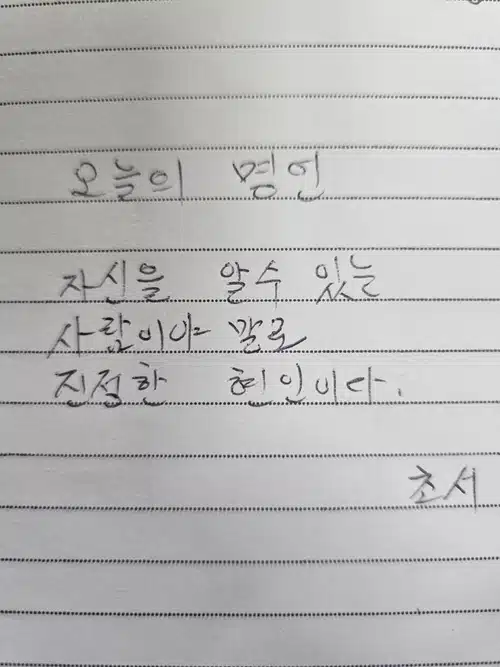 오늘의 명언
자신을 알수 있는
사람이야 말로
진정한 현인이다.
초서